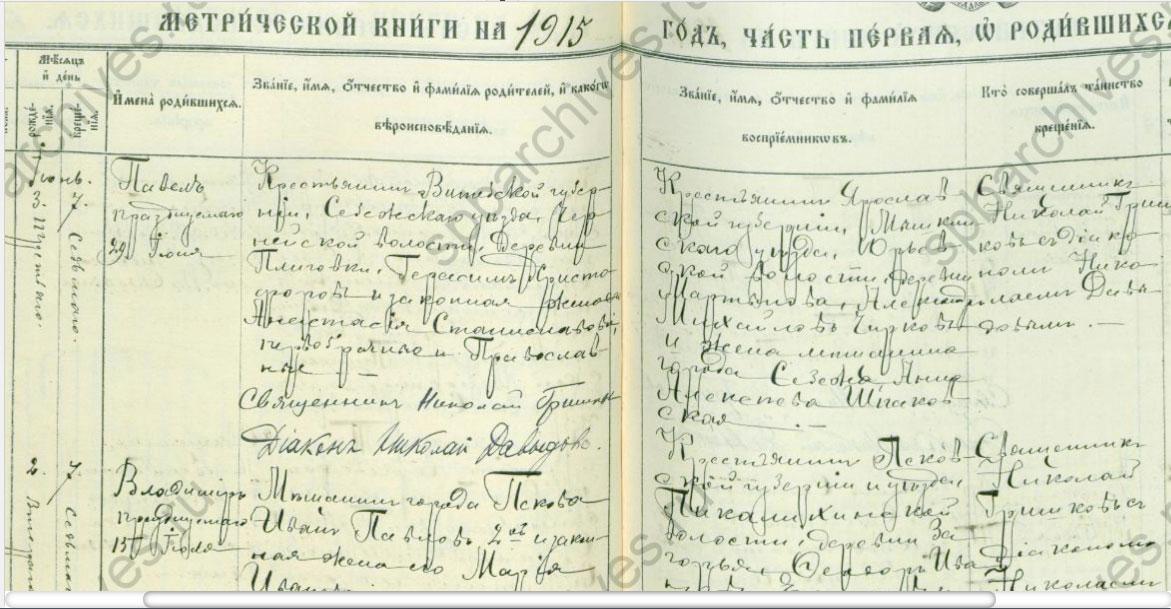 МЕТРИ́ЧЕСКОЙ КНИ́ГИ НА 1915 ГО́ДЪ, ЧА́СТЬ ПЕ́РВАѦ, Ѡ РОДИ́ВШИХСѦ
Мѣ́сѧцъ и де́нь
рожде́нїѧ.
креще́нїѧ.
Имена̀ роди́вшихсѧ.
Зва́нїе, и́мѧ, о́тчество и фами́лїѧ роди́телей, и како́гѡ
вѣроисповѣ́данїѧ.
Зва́нїе, и́мѧ, о́тчество и фами́лїѧ
воспрїе́мникѡвъ.
Кто̀ соверша́лъ та́инство
креще́нїѧ.
Іюнь.
3.
Третьяго.
7.
Седьмаго.
Павелъ
празднуемаго
29 Іюня
Крестьянинъ Витебской губер-
ніи, Себежскаго уѣзда, Чер-
нейской волости, деревни
Христо-
форовъ и законная жена
Анастасія Станиславова,
первобрачные и Православ-
ные —
Священникъ Николай Гришк
Діаконъ Николай Давыдовъ.
Крестьянинъ Ярослав
ской губерніи, Мышкин
скаго уѣзда, Юрьев
ской волости, деревни
Мартынова, Александръ
Михайловъ Чирковъ
и жена мѣщанина
города Себежа Анна
Алексѣева Шпаков
ская
Священникъ
Николай Гриш
ковъ съ діако
номъ Нико
лаемъ Давы
довымъ. —
2.
7.
Владиміръ
празднуемаго
15 Іюля
Мѣщанинъ города Пскова
Иванъ Павловъ и закон-
ная жена его Марія
Иванова
Крестьянинъ Псков
ской губерніи и уѣзда
волости, деревни За
горья, Ѳедоръ Ива
Священникъ
Николай
Гришковъ съ
діакономъ
Николаемъ
spbarchives.ru